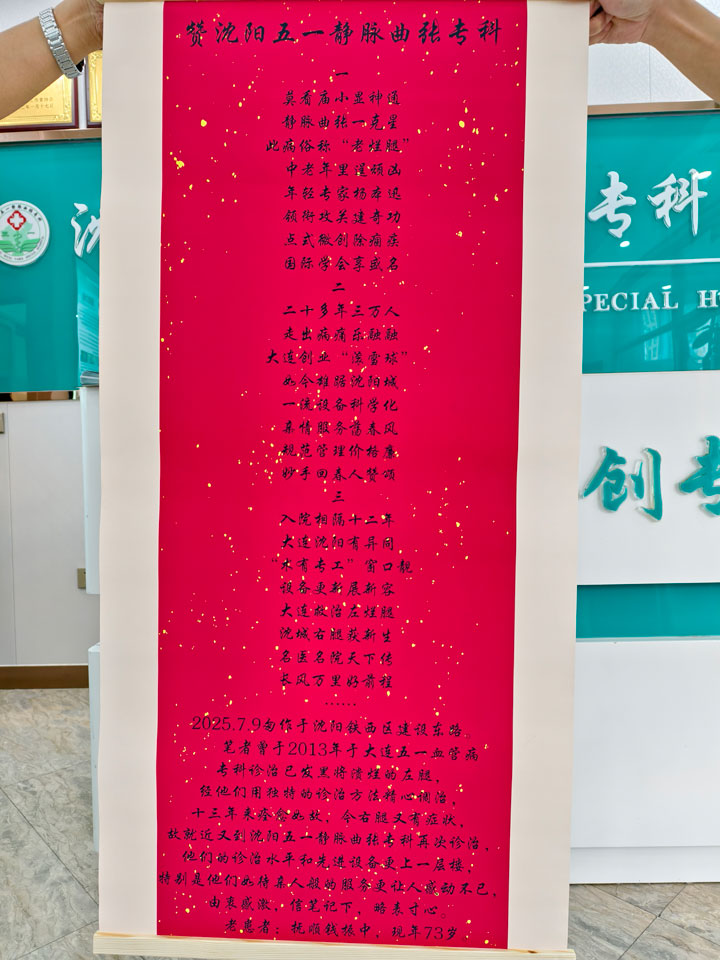 赞沈阳五一静脉曲张专科
一
莫看庙小显神通
静脉曲张一克星
此病俗称“老烂腿”
中老年里逞顽凶
年轻专家杨本迅
领衔攻关建奇功
点式微创除痼疾
国际学会享盛名
二
二十多年三万人
走出病痛乐融融
大连创业“滚雪球”
如今雄踞沈阳城
一流设备科学化
亲情服务荡春风
规范管理价格廉
妙手回春人赞颂
三
入院相隔十二年
大连沈阳有异同
“术有专工”窗口靓
设备更新展新容
大连救治左烂腿
沈城右腿获新生
名医名院天下传
长风万里好前程
……
2025.7.9匆作于沈阳铁西区建设东路。
笔者曾于2013年于大连五一血管病
专科诊治已发黑将溃烂的左腿，
经他们用独特的诊治方法精心调治，
十三年来痊愈如故；今右腿又有症状，
故就近又到沈阳五一静脉曲张专科再次诊治。
他们的诊治水平和先进设备更上一层楼，
特别是他们如待亲人般的服务更让人感动不已，
由衷感激，信笔记下，略表寸心。
老患者：抚顺钱振中，现年73岁
沈
专科
PECIAL H
创专